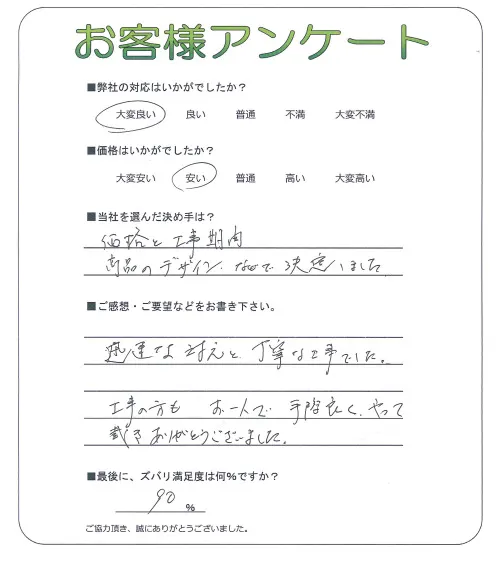 お客様アンケート
■弊社の対応はいかがでしたか？
大変良い 良い 普通 不満 大変不満
■価格はいかがでしたか？
大変安い 安い 普通 高い 大変高い
■当社を選んだ決め手は？
価格と工事期間
商品のデザイン、などで決定いました
■ご感想・ご要望などをお書き下さい。
迅速な対応と、丁寧な工事でした。
工事の方も お一人で 手際良く、やって
戴きありがとうございました。
■最後に、ズバリ満足度は何％ですか？
90 ％
ご協力頂き、誠にありがとうございました。